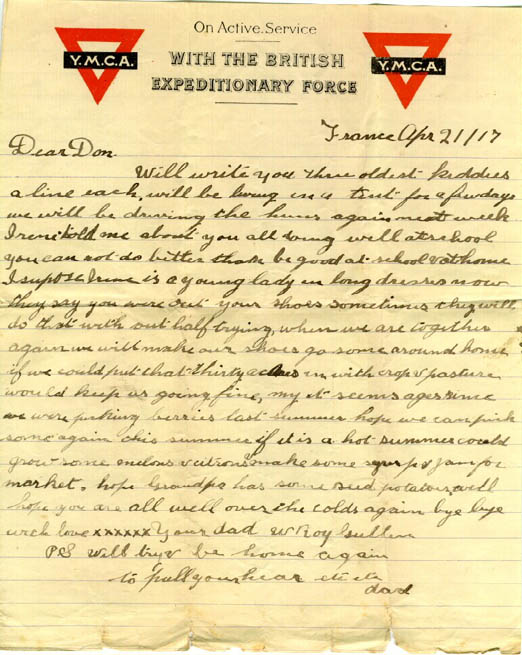 On Active Service
Y.M.C.A. WITH THE BRITISH Y.M.C.A.
EXPEDITIONARY FORCE
France Apr 21/17
Dear Don.
Will write you three oldest kiddies
a line each, will be living in a tent for a few days
we will be driving the huns again next week
Irene told me about you all doing well at school
you can not do better than be good at school & at home
I supose Irene is a young lady in long dresses now
they say you were out your shoes sometimes they will
do that with out half trying, when we are together
again we will make our shoes go some around home
if we could put that thirty acres in with crop & pasture
would keep us going fine, my it seems ages since
we were picking berries last summer hope we can pick
some again this summer if it is a hot summer could
grow some melons & citrons make some & jam for
market. hope Grandpa has some seed potatoes, will
hope you are all well over the colds again bye bye
with love xxxxxx Your dad W Roy
PS will try & be home again
to pull your hear etc etc
dad